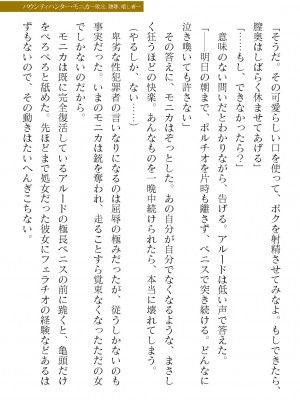 バウンティハンター・モニカ
「そうだ。その可愛らしい口を使って、ボクを射精させてみなよ。もしできたら、
膣奥はしばらく休ませてあげる」
「……もし、できなかったら？」
意味のない問いだとわかりながら、告げる。アルードは低い声で答えた。
「……明日の朝まで、ポルチオを片時も離さず、ペニスで突き続ける。どんなに
泣き喚いても許さない」
その答えに、モニカはぞっとした。あの自分が自分でなくなるような、まさし
く狂うほどの快楽。あんなものを一晩中続けられたら、本当に壊れてしまう。
（やるしか、ない……）
卑劣な性犯罪者の言いなりになるのは屈辱の極みだったが、従うしかないのも
事実だった。いまのモニカは銃を奪われ、走ることすら覚束なくなったただの女
モニカは既に完全復活しているアルードの極長ペニスの前に跪くと、亀頭だけ
をぺろぺろと舐めた。先ほどまで処女だった彼女にフェラチオの経験などあるは
ずもなく、その動きはたいへんぎこちない。